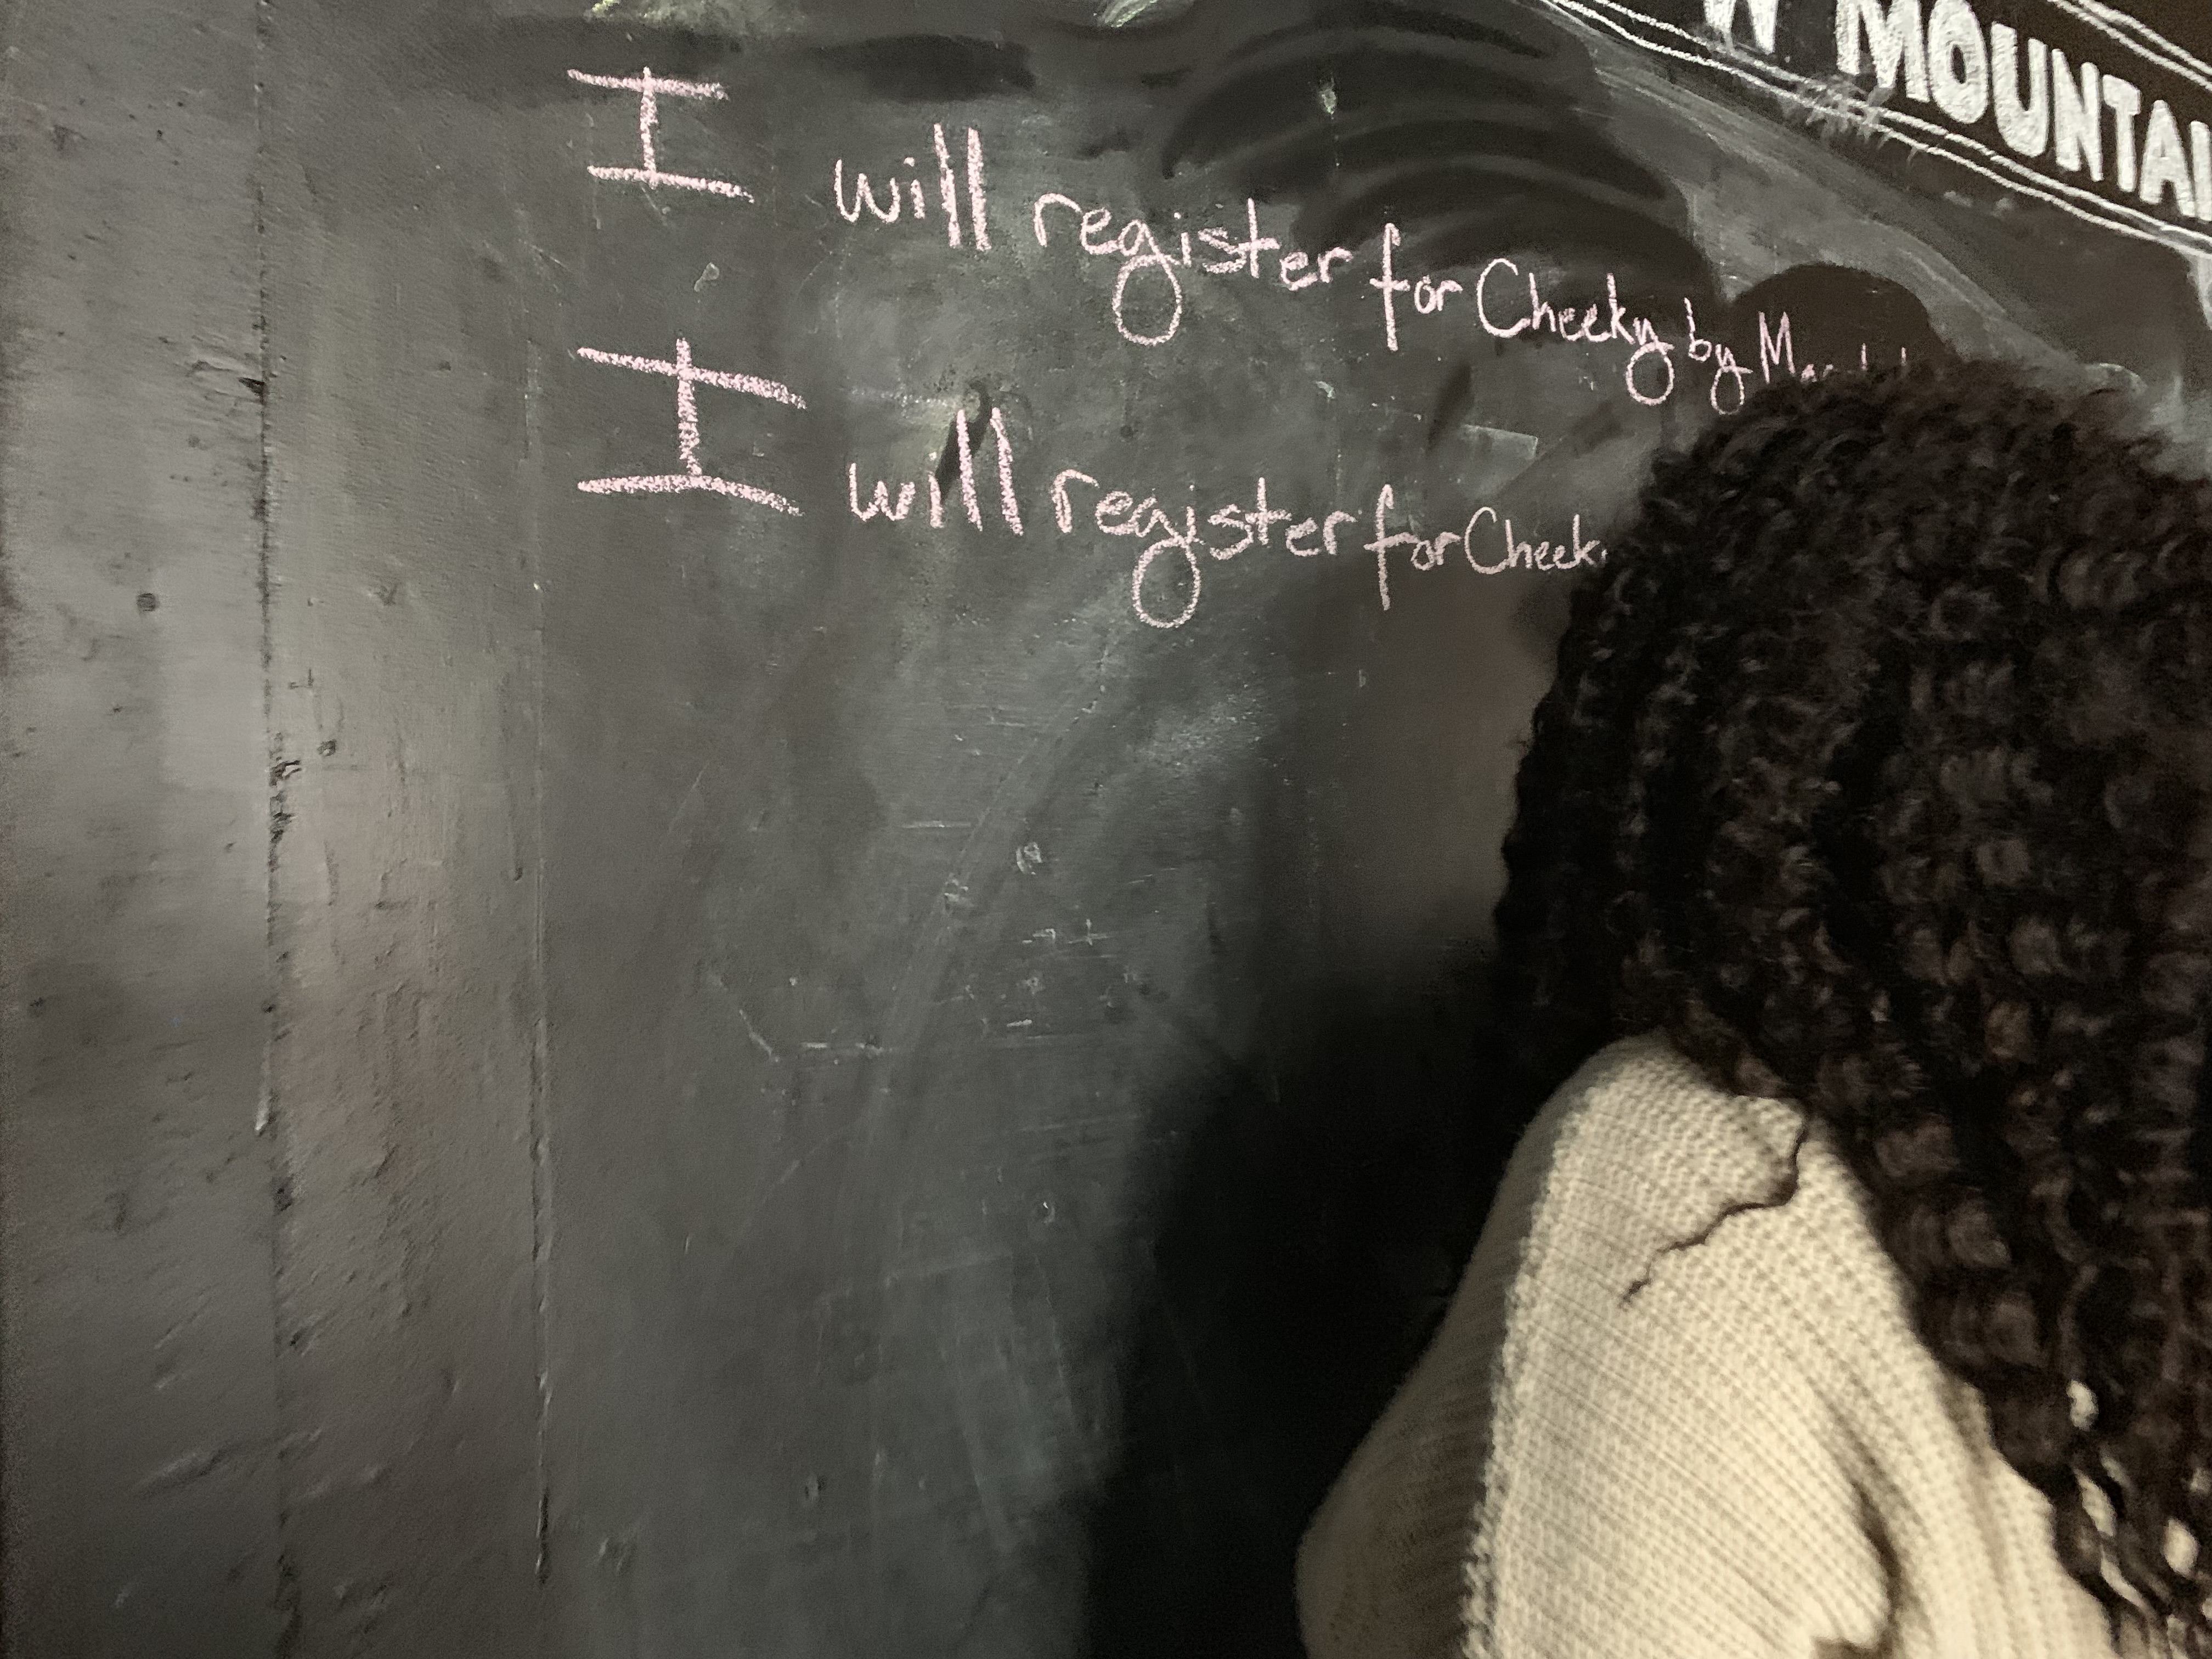 MOUNTAI
I will register for Cheeky by
I will register for Cheek